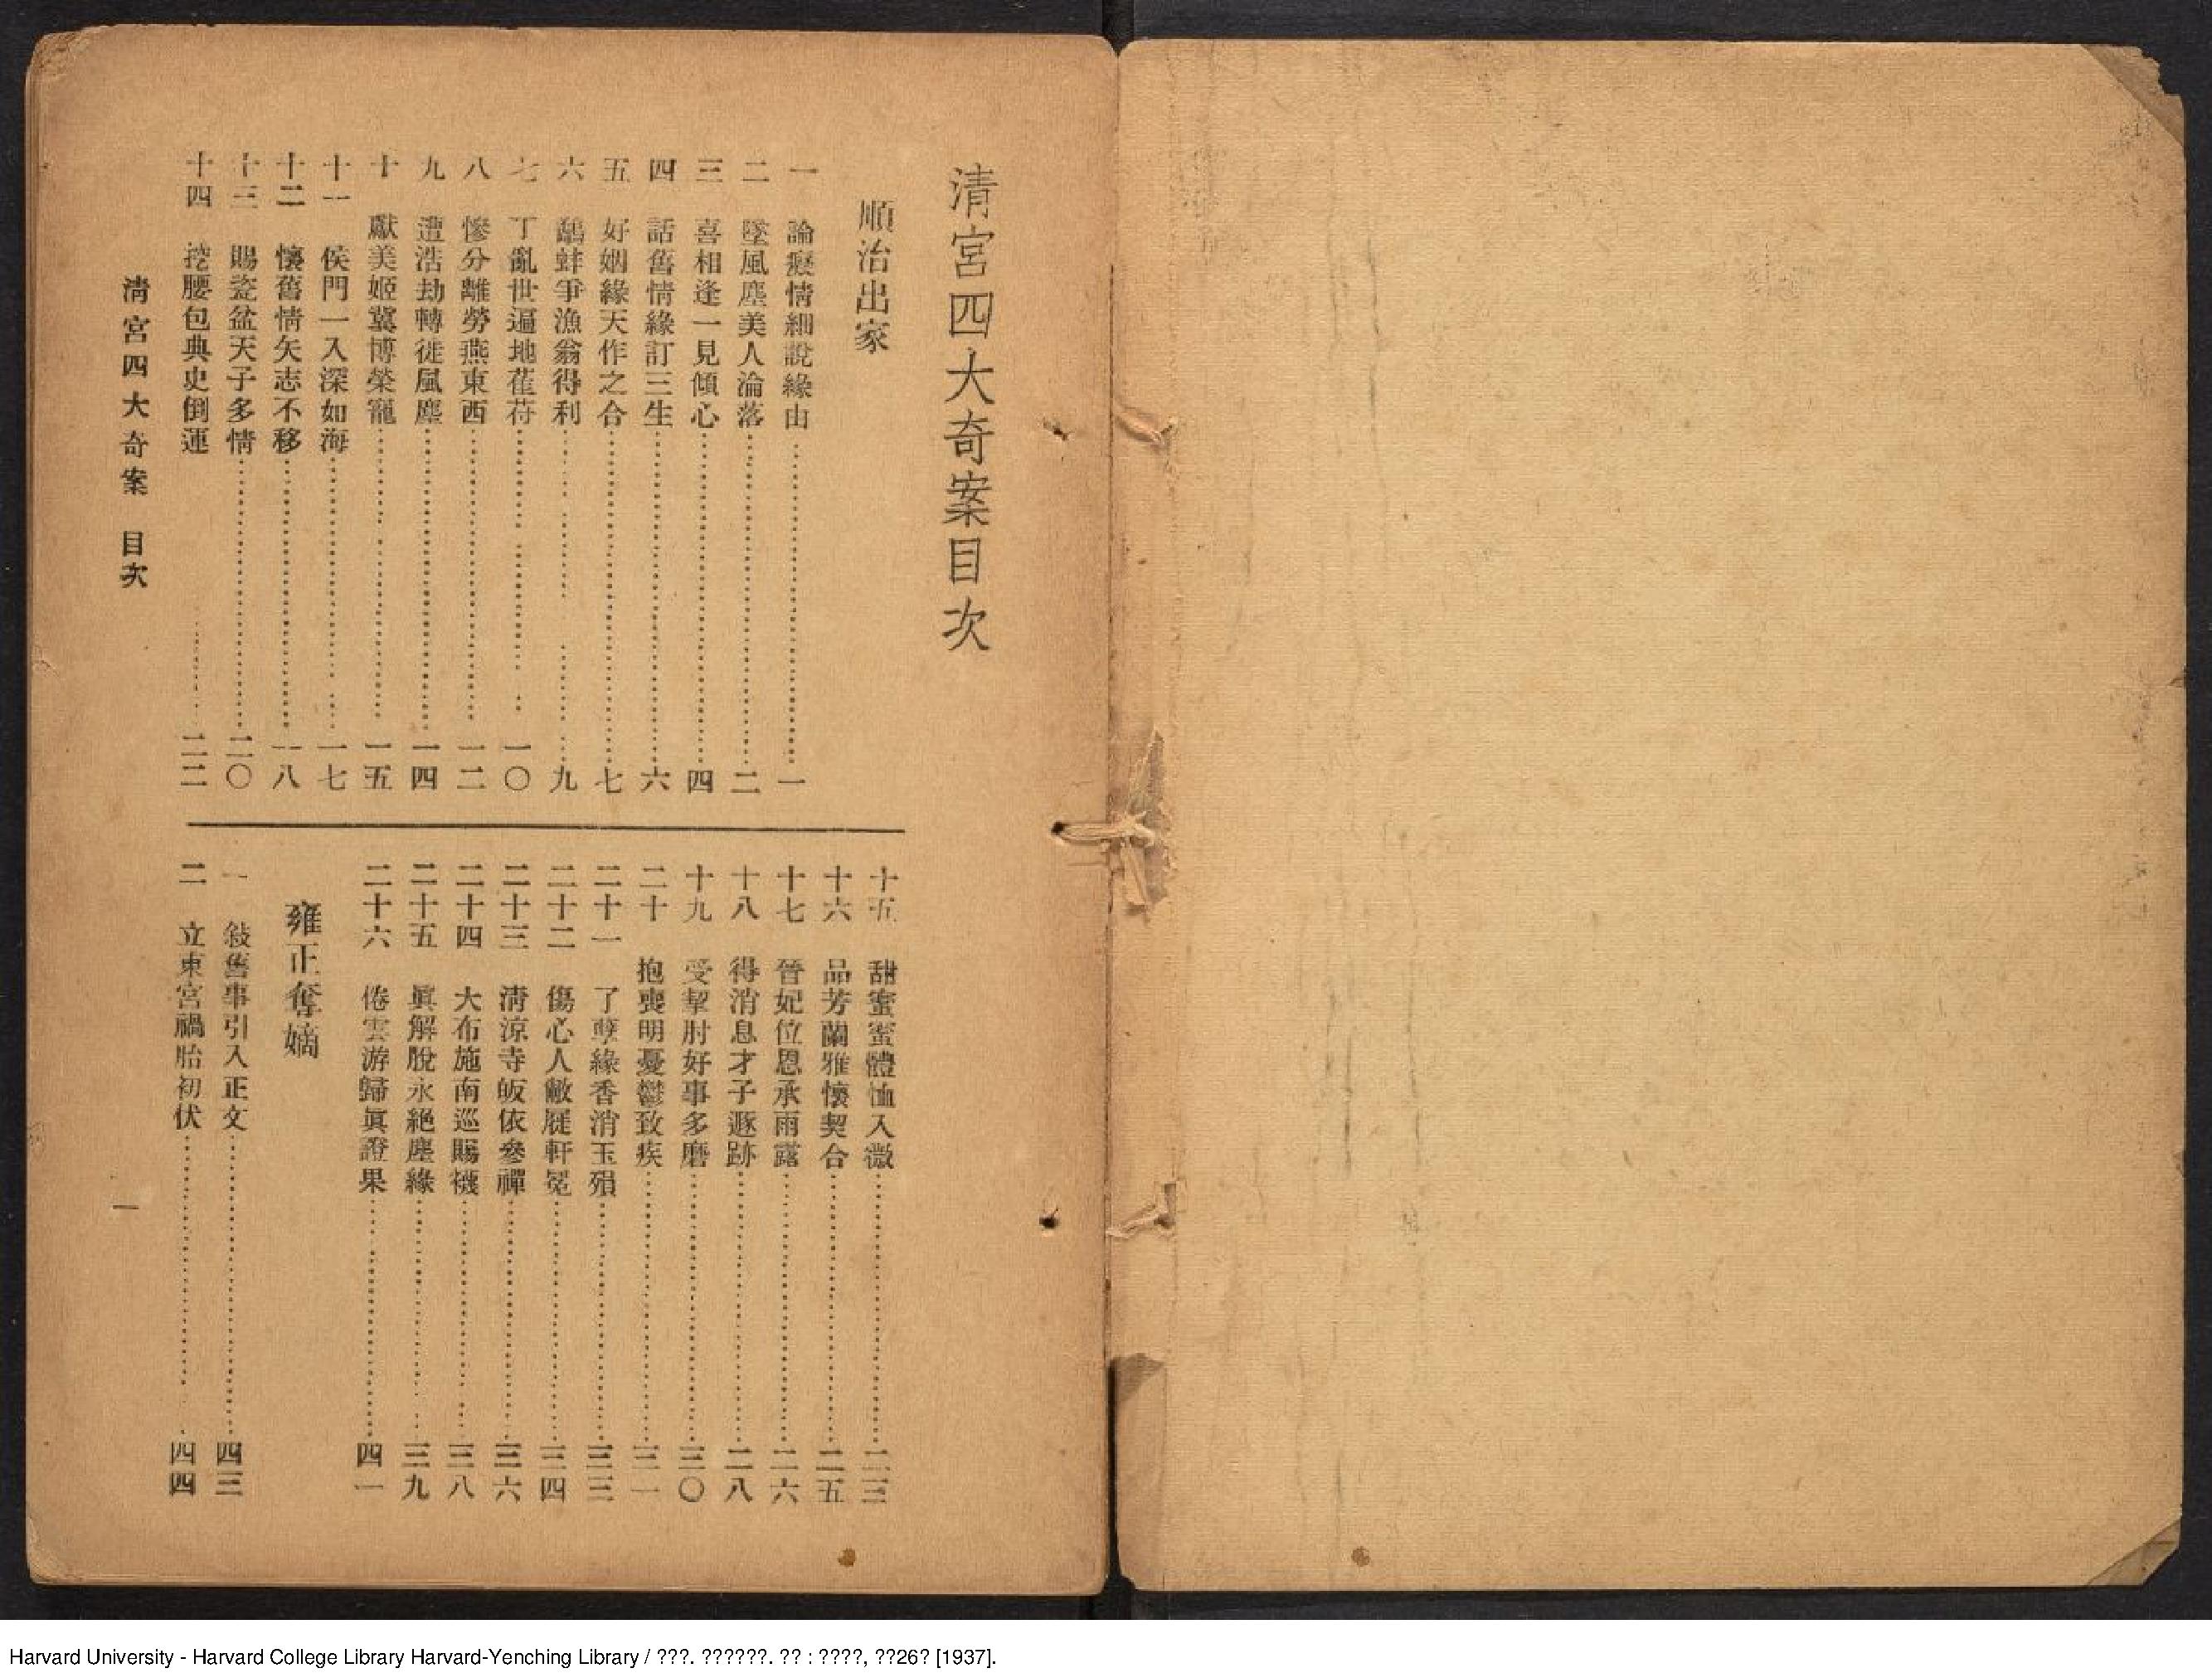 清宮四大奇案目次
順治出家
一 論癡情細說緣由 一
二 墜風塵美人淪落 二
三 喜相逢一見傾心 四
四 話舊情緣訂三生 六
五 好姻緣天作之合 七
六 鷸蚌爭漁翁得利 九
七 丁亂世遍地萑苻 一〇
八 慘分離勞燕東西 一二
九 遭浩劫轉徙風塵 一四
十 獻美姬冀博榮寵 一五
十一 侯門一入深如海 一七
十二 懷舊情矢志不移 一八
十三 賜瓷盆天子多情 二〇
十四 挖腰包典史倒運 二二
十五 甜蜜蜜體恤入微 二三
十六 品芳蘭雅懷契合 二五
十七 晉妃位恩承雨露 二六
十八 得消息才子遯跡 二八
十九 受掣肘好事多磨 三〇
二十 抱喪明憂鬱致疾 三一
二十一 了孽緣香消玉殞 三三
二十二 傷心人敝屣軒冕 三四
二十三 淸涼寺皈依參禪 三六
二十四 大布施南巡賜襪 三八
二十五 眞解脫永絕塵緣 三九
二十六 倦雲游歸眞證果 四一
雍正奪嫡
一 敍舊事引入正文 四三
二 立東宮禍胎初伏 四四
淸宮四大奇案 目次
一
Harvard University - Harvard College Library Harvard-Yenching Library / ???. ??????. ?? : ????, ??26? [1937].